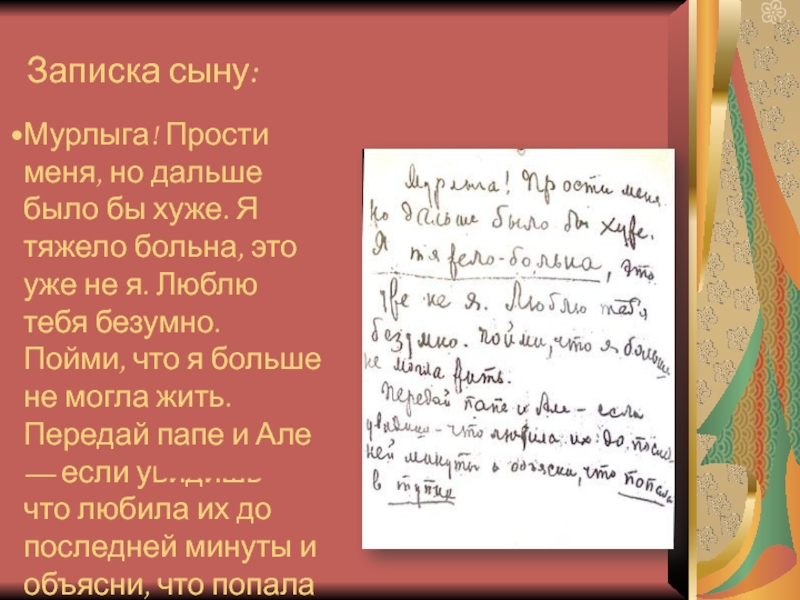 Записка сыну:
•Мурлыга! Прости
меня, но дальше
было бы хуже. Я
тяжело больна, это
уже не я. Люблю
тебя безумно.
Пойми, что я больше
не могла жить.
Передай папе и Але
— если увидишь
что любила их до
последней минуты и
объясни, что попала
Мурлыга! Прости меня
но дальше было бы хуже.
Я тяжело-больна, это
уже не я. Люблю тебя
безумно. Пойми, что я больше
не могла жить.
Передай папе и Але – если
увидишь – что любила их до послед
ней минуты и объясни, что попала
в тупик